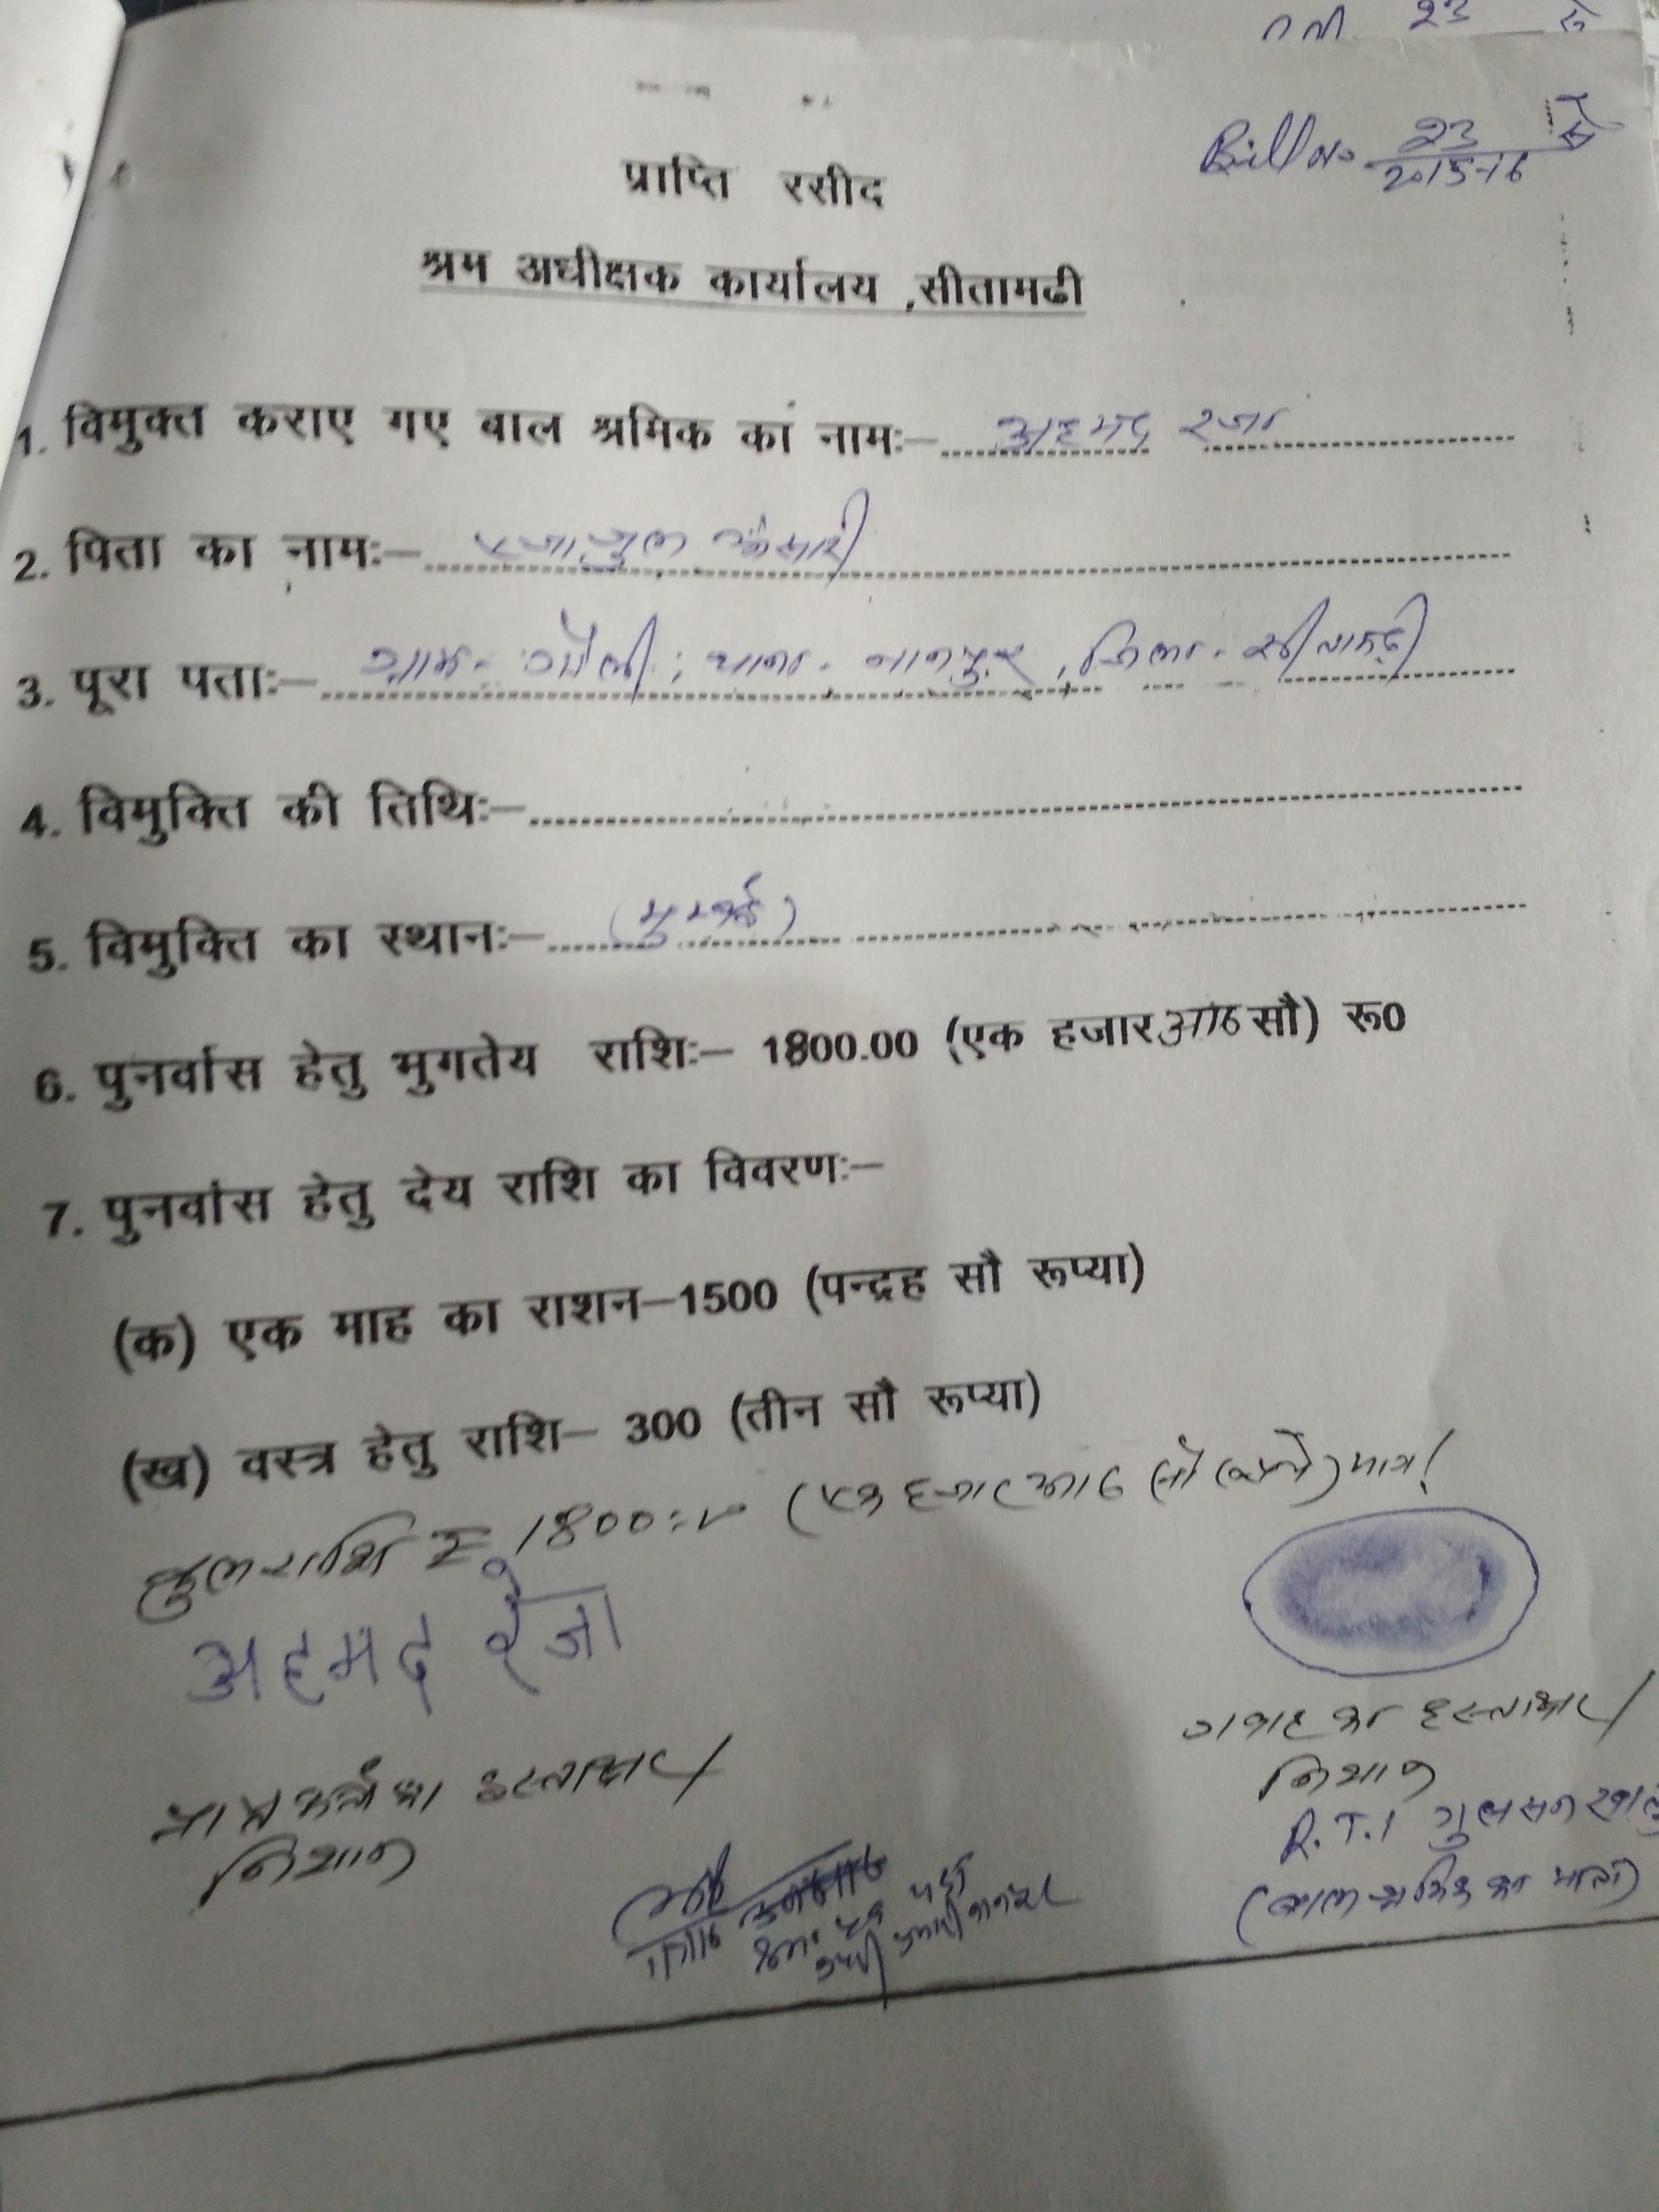 23
Bill No. 23
2015-16
प्राप्ति रसीद
श्रम अधीक्षक कार्यालय ,सीतामढी
1. विमुक्त कराए गए बाल श्रमिक का नामः– अहमद रजा
2. पिता का नामः–
3. पूरा पताः– ग्राम- थाना- नानपुर, जिला- सीतामढ़ी
4. विमुक्ति की तिथिः–
5. विमुक्ति का स्थानः– (मुम्बई)
6. पुनर्वास हेतु भुगतेय राशिः– 1800.00 (एक हजार आठ सौ) रू0
7. पुनर्वास हेतु देय राशि का विवरणः–
(क) एक माह का राशन–1500 (पन्द्रह सौ रूप्या)
(ख) वस्त्र हेतु राशि– 300 (तीन सौ रूप्या)
कुल राशि = 1800=00 (एक हजार आठ सौ रूपये) मात्र।
अहमद रेजा
प्राप्तकर्ता का हस्ताक्षर/
निशान
गवाह का हस्ताक्षर/
निशान
R.T.I गुलसन
(बाल श्रमिक का माता)